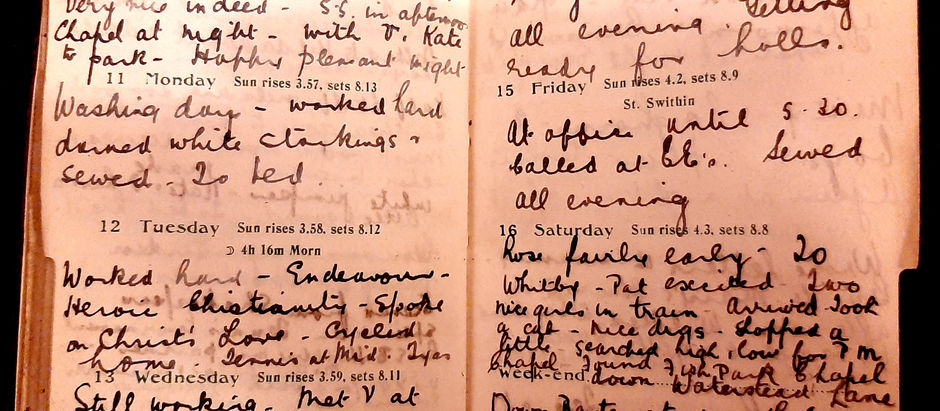 Very nice indeed - S.S. in afternoon
Chapel at night - with V. Kate
to park - Happy pleasant night
11 Monday Sun rises 3.57, sets 8.13
Washing day - worked hard
darned white stockings &
sewed To bed.
12 Tuesday Sun rises 3.58, sets 8.12
☽ 4h 16m Morn
Worked hard - Endeavour -
Heroic Christianity - Spoke
on Christ's Love - Cycled
home. Tennis at Mid
13 Wednesday Sun rises 3.59, sets 8.11
Still working - Met V at
all evening. Getting
ready for holls.
15 Friday Sun rises 4.2, sets 8.9
St. Swithin
At office until 5.30.
Called at
Sewed
all evening
16 Saturday Sun rises 4.3, sets 8.8
Rose fairly early - To
Whitby - Pat excited - Two
nice girls in train - Arrived Took
a cat - nice digs - Loffed a
little searched high & low for P.M
Chapel Found Fish Park Chapel
Week-end down Waterstead Lane